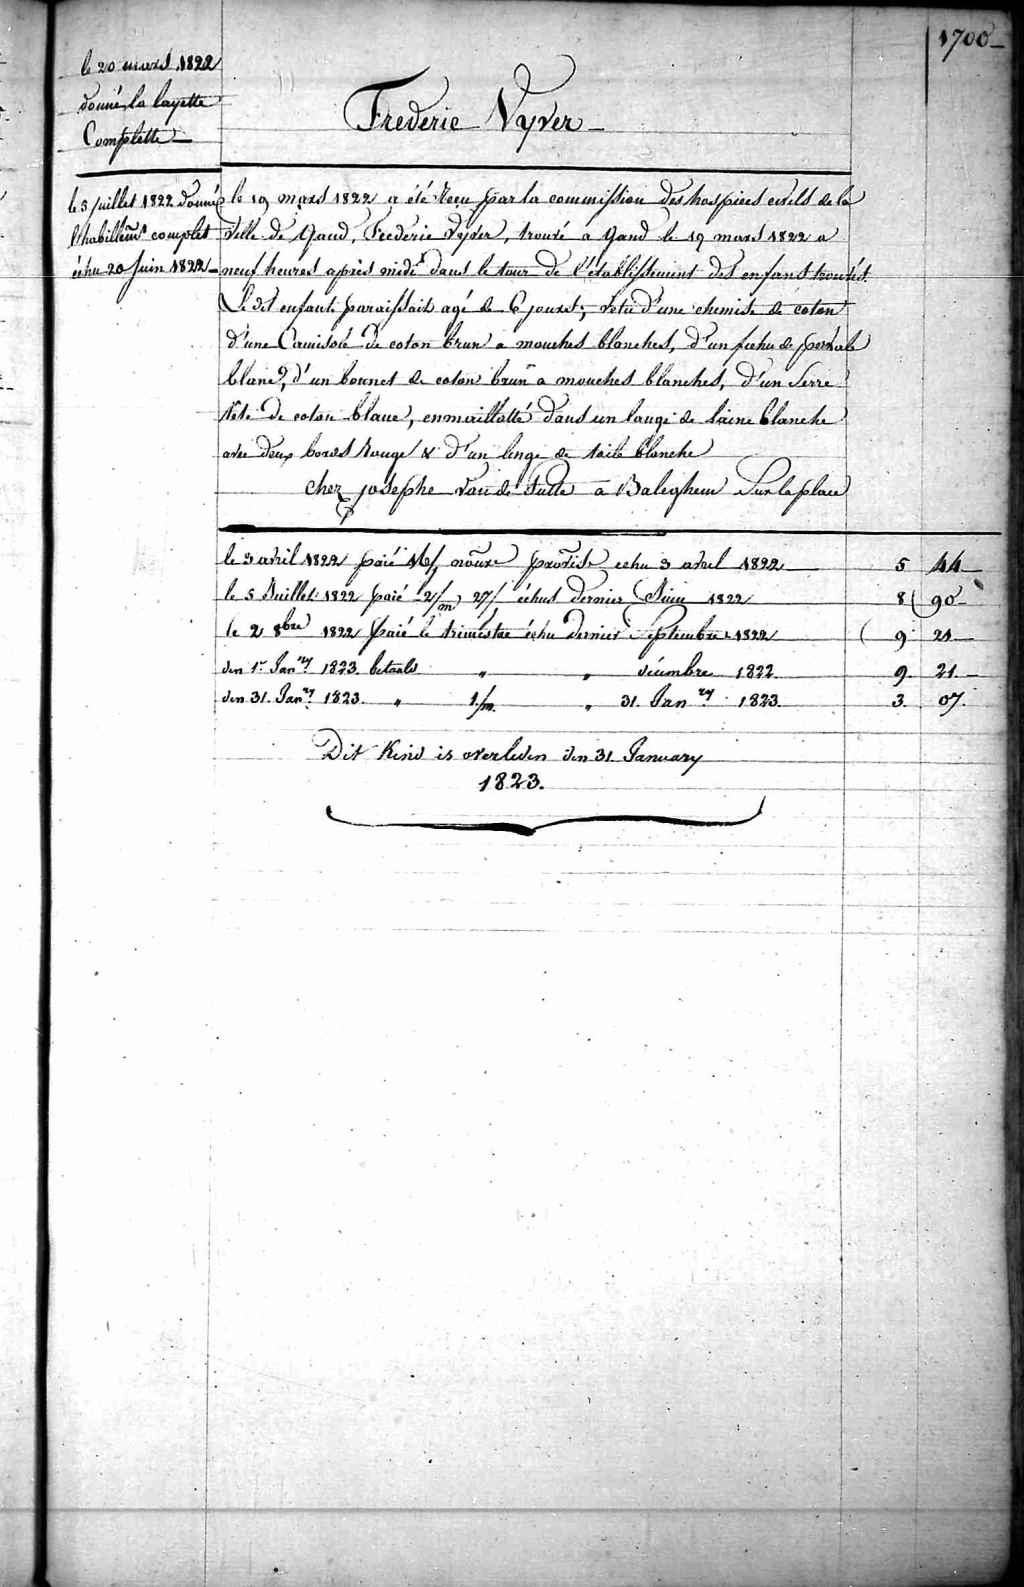 1700
le 20 mars 1822
donné la layette
Complette
Frederic Vyver
le 5 juillet 1822 donné
l'habillemt complet
échu 20 Juin 1822
le 19 mars 1822 a été Reçu par la commission des hospices civils de la
Ville de Gand, Frederic Vyver, trouvé a Gand le 19 mars 1822 a
neuf heures après midi dans le tour de l'établissement des enfans trouvés.
Le dit enfant paraissait agé de 6 jours; vetu d'une chemise de coton
d'une Camisole de coton brun a mouches blanches, d'un fichu de perkale
blanc, d'un bonnet de coton brun a mouches blanches, d'un Serre
tête de coton blanc, enmaillotté dans un lange de laine blanche
avec deux bords Rouge & d'un linge de toile blanche
chez josephe van de Putte a Baleghem Sur la place
le 3 avril 1822 paié 16/j nourre provise echu 3 avril 1822 5 44
le 5 Juillet 1822 paié 2/m 27/ échus dernier Juin 1822 8 90
le 2 8bre 1822 Paié le trimestre échu dernier Septembre 1822 9 21
den 1r Janry 1823 betaald " " décembre 1822 9. 21
den 31. Janry 1823. " 1/m. " 31. Janry 1823 3. 07.
Dit Kind is overleden den 31. January
1823.